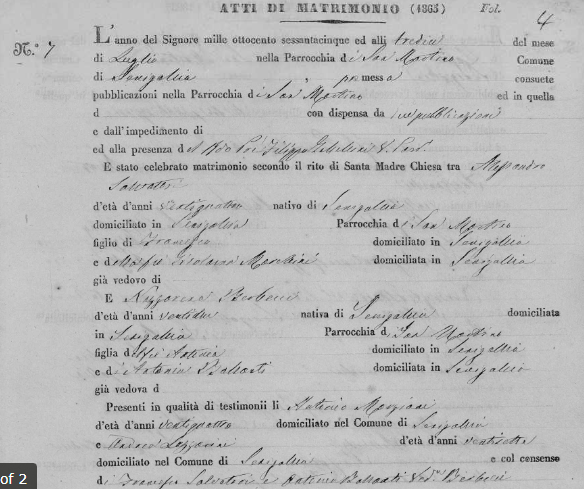 ATTI DI MATRIMONIO (1865) Fol. 4
N.° 7 L'anno del Signore mille ottocento sessantacinque ed alli tredici del mese
di Luglio nella Parrocchia di San Martino Comune
di Senigallia premessa consuete
pubblicazioni nella Parrocchia di San Martino ed in quella
d con dispensa da pubblicazioni
e dall'impedimento di
ed alla presenza del Filippo
E stato celebrato matrimonio secondo il rito di Santa Madre Chiesa tra Alessandro
Salvatori
d'età d'anni ventiquattro nativo di Senigallia
domiciliato in Senigallia Parrocchia d San Martino
figlio di Francesco domiciliato in Senigallia
e d domiciliata in Senigallia
già vedovo di
E Nazzarena Berboni
d'età d'anni nativa di Senigallia domiciliata
in Senigallia Parrocchia d San Martino
figlia d domiciliato in Senigallia
e di Antonia domiciliata in Senigallia
già vedova d
Presenti in qualità di testimonii li Antonio
d'età d'anni ventiquattro domiciliato nel Comune di Senigallia
e d'età d'anni ventisette
domiciliato nel Comune di Senigallia e col consenso
di Francesco Salvatori e Antonia
of 2